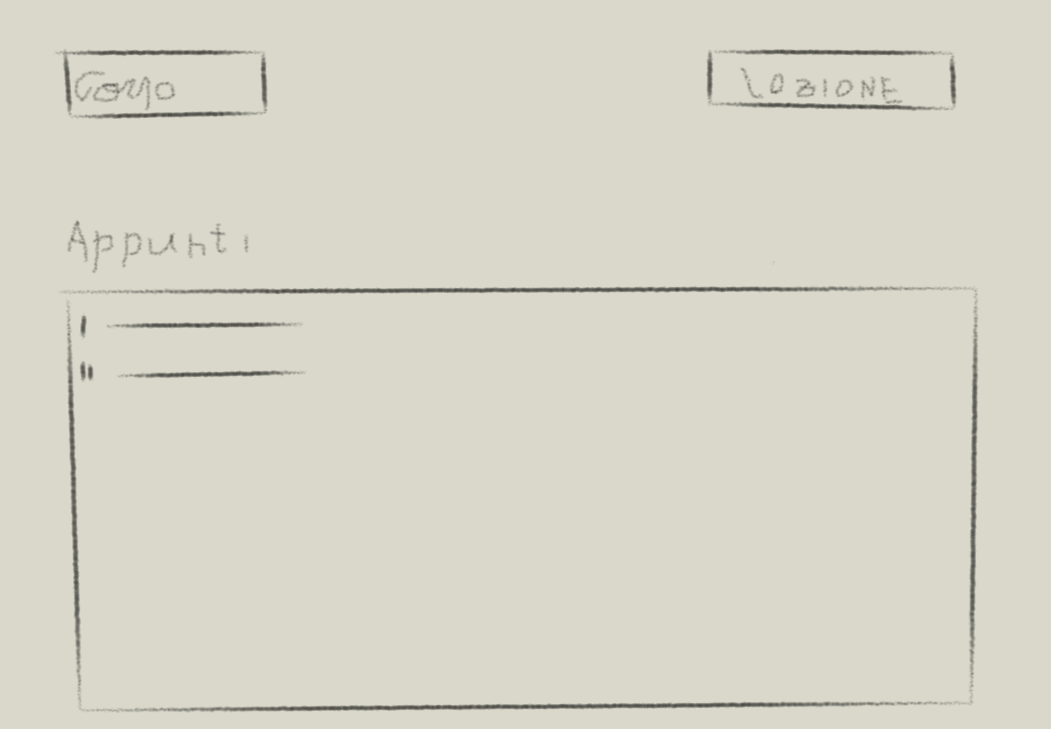 Corso
LOZIONE
Appunti
I
II